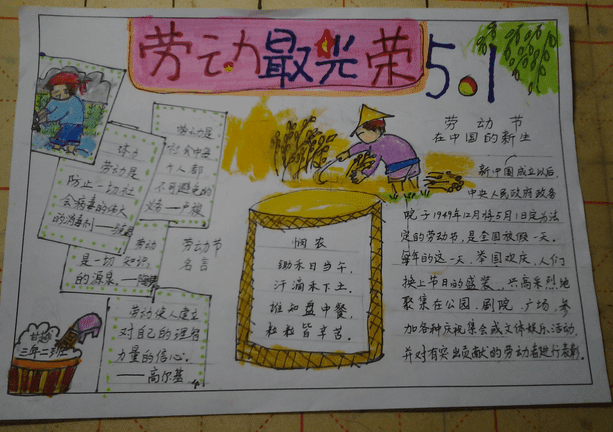 劳动最光荣
5.1
劳动是
社会中每
个人都
不可避免的
义务——卢梭
劳动是
防止一切社
会病毒的伟大
的消毒剂——
劳动
是一切知识
的源泉。——陶铸
劳动节
名言
劳动使人建立
对自己的理智
力量的信心。
——高尔基
三年二班
悯农
锄禾日当午，
汗滴禾下土。
谁知盘中餐，
粒粒皆辛苦。
劳动节
在中国的新生
新中国成立以后，
中央人民政府政务
院于1949年12月将5月1日定为法
定的劳动节，是全国放假一天。
每年的这一天，举国欢庆，人们
换上节日的盛装，兴高采烈地
聚集在公园、剧院、广场，参
加各种庆祝集会或文体娱乐活动，
并对有突出贡献的劳动者进行表彰。